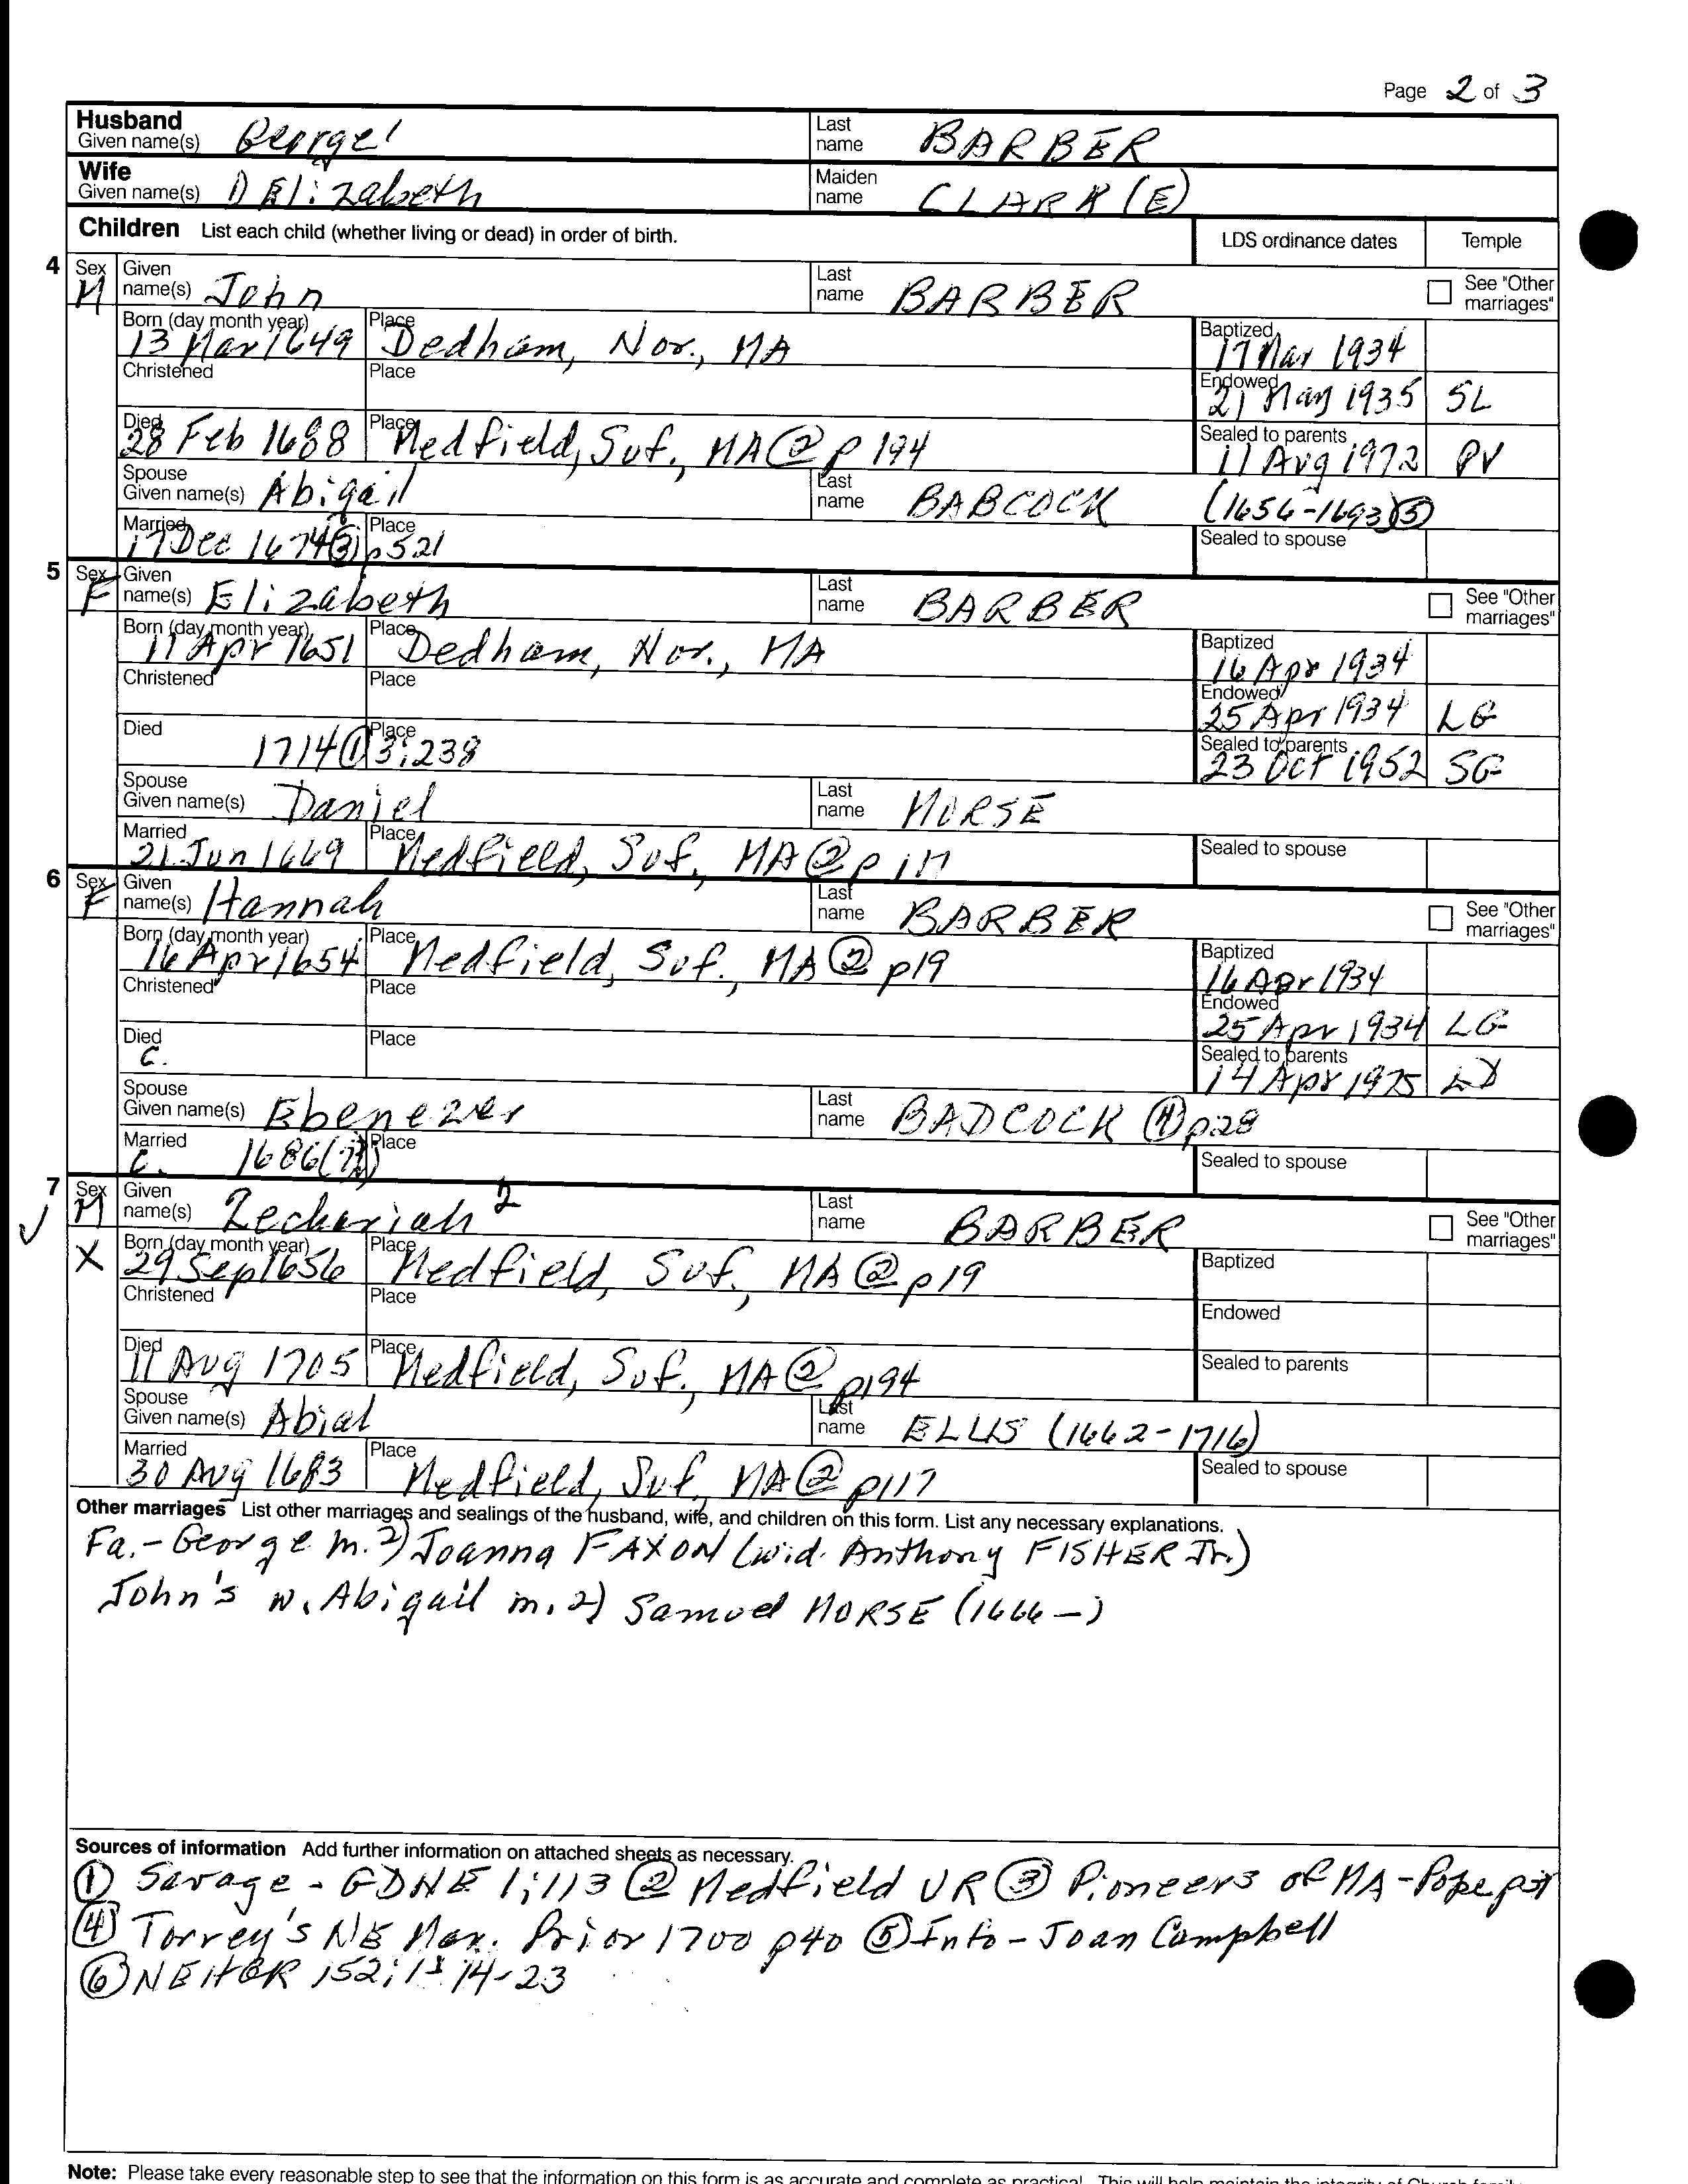 Page 2 of 3
Husband Given name(s) George¹ Last name BARBER
Wife Given name(s) 1) Elizabeth Maiden name CLARK (E)
Children List each child (whether living or dead) in order of birth. LDS ordinance dates Temple
4 Sex M Given name(s) John Last name BARBER See "Other marriages"
Born (day month year) 13 Mar 1649 Place Dedham, Nor., MA Baptized 17 Mar 1934
Christened Place Endowed 21 May 1935 SL
Died 28 Feb 1688 Place Medfield, Suf., MA ② p 194 Sealed to parents 11 Aug 1972 PV
Spouse Given name(s) Abigail Last name BABCOCK (1656-1693) ⑤
Married 17 Dec 1674 ③ p 521 Place Sealed to spouse
5 Sex F Given name(s) Elizabeth Last name BARBER See "Other marriages"
Born (day month year) 11 Apr 1651 Place Dedham, Nor., MA Baptized 16 Apr 1934
Christened Place Endowed 25 Apr 1934 LG
Died 1714 ① 3:238 Place Sealed to parents 23 Oct 1952 SG
Spouse Given name(s) Daniel Last name MORSE
Married 21 Jun 1669 Place Medfield, Suf., MA ② Sealed to spouse
6 Sex F Given name(s) Hannah Last name BARBER See "Other marriages"
Born (day month year) 16 Apr 1654 Place Medfield, Suf., MA ② p19 Baptized 16 Apr 1934
Christened Place Endowed 25 Apr 1934 LG
Died C. Place Sealed to parents 14 Apr 1975
Spouse Given name(s) Ebenezer Last name BADCOCK ④ p28
Married C. 1686 Place Sealed to spouse
7 Sex M Given name(s) Zechariah² Last name BARBER See "Other marriages"
X Born (day month year) 29 Sep 1656 Place Medfield, Suf., MA ② p19 Baptized
Christened Place Endowed
Died 11 Aug 1705 Place Medfield, Suf., MA ② p194 Sealed to parents
Spouse Given name(s) Abial Last name ELLIS (1662-1716)
Married 30 Aug 1683 Place Medfield, Suf, MA ② p117 Sealed to spouse
Other marriages List other marriages and sealings of the husband, wife, and children on this form. List any necessary explanations.
Fa.- George m. 2) Joanna FAXON (wid. Anthony FISHER Jr.)
John's w. Abigail m. 2) Samuel MORSE (1666 -)
Sources of information Add further information on attached sheets as necessary.
① Savage - GDNE 1:113 ② Medfield VR ③ Pioneers of MA - Pope
④ Torrey's NE Mar. Prior 1700 p40 ⑤ Info - Joan Campbell
⑥ NEHGR 152: 14-23
Note: Please take every reasonable step to see that the information on this form is as accurate and complete as practical. This will help maintain the integrity of Church family